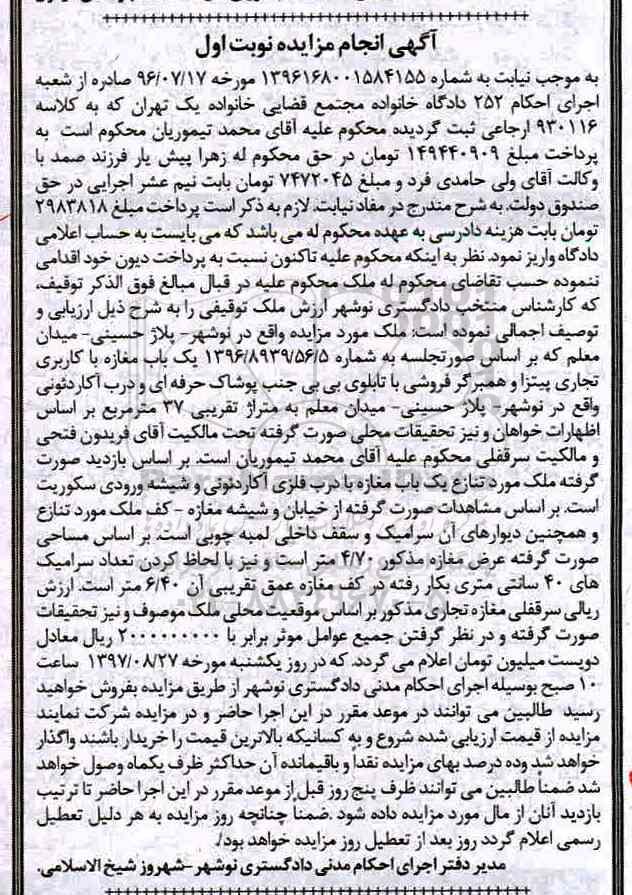 آگهی انجام مزایده نوبت اول
به موجب نیابت به شماره ۱۳۹۶۱۶۸۰۰۱۵۸۴۱۵۵ مورخه ۹۶/۰۷/۱۷ صادره از شعبه
اجرای احکام ۲۵۲ دادگاه خانواده مجتمع قضایی خانواده یک تهران که به کلاسه
۹۳۰۱۱۶ ارجاعی ثبت گردیده محکوم علیه آقای محمد تیموریان محکوم است به
پرداخت مبلغ ۱۴۹۴۴۰۹۰۹ تومان در حق محکوم له زهرا پیش یار فرزند صمد با
وکالت آقای ولی حامدی فرد و مبلغ ۷۴۷۲۰۴۵ تومان بابت نیم عشر اجرایی در حق
صندوق دولت. به شرح مندرج در مفاد نیابت. لازم به ذکر است پرداخت مبلغ ۲۹۸۳۸۱۸
تومان بابت هزینه دادرسی به عهده محکوم له می باشد که می بایست به حساب اعلامی
دادگاه واریز نمود. نظر به اینکه محکوم علیه تاکنون نسبت به پرداخت دیون خود اقدامی
ننموده حسب تقاضای محکوم له ملک محکوم علیه در قبال مبالغ فوق الذکر توقیف،
که کارشناس منتخب دادگستری نوشهر ارزش ملک توقیفی را به شرح ذیل ارزیابی و
توصیف اجمالی نموده است: ملک مورد مزایده واقع در نوشهر- پلاژ حسینی- میدان
معلم که بر اساس صورتجلسه به شماره ۱۳۹۶/۸۹۳۹/۵۶/۵ یک باب مغازه با کاربری
تجاری پیتزا و همبرگر فروشی با تابلوی بی بی جنب پوشاک حرفه ای و درب آکاردئونی
واقع در نوشهر- پلاژ حسینی- میدان معلم به متراژ تقریبی ۳۷ مترمربع بر اساس
اظهارات خواهان و نیز تحقیقات محلی صورت گرفته تحت مالکیت آقای فریدون فتحی
و مالکیت سرقفلی محکوم علیه آقای محمد تیموریان است. بر اساس بازدید صورت
گرفته ملک مورد تنازع یک باب مغازه با درب فلزی آکاردئونی و شیشه ورودی سکوریت
است. بر اساس مشاهدات صورت گرفته از خیابان و شیشه مغازه - کف ملک مورد تنازع
و همچنین دیوارهای آن سرامیک و سقف داخلی لمبه چوبی است. بر اساس مساحی
صورت گرفته عرض مغازه مذکور ۴/۷۰ متر است و نیز با لحاظ کردن تعداد سرامیک
های ۴۰ سانتی متری بکار رفته در کف مغازه عمق تقریبی آن ۶/۴۰ متر است. ارزش
ریالی سرقفلی مغازه تجاری مذکور بر اساس موقعیت محلی ملک موصوف و نیز تحقیقات
صورت گرفته و در نظر گرفتن جمیع عوامل موثر برابر با ۲۰۰۰۰۰۰۰۰۰ ریال معادل
دویست میلیون تومان اعلام می گردد. که در روز یکشنبه مورخه ۱۳۹۷/۰۸/۲۷ ساعت
۱۰ صبح بوسیله اجرای احکام مدنی دادگستری نوشهر از طریق مزایده بفروش خواهید
رسید طالبین می توانند در موعد مقرر در این اجرا حاضر و در مزایده شرکت نمایند
مزایده از قیمت ارزیابی شده شروع و به کسانیکه بالاترین قیمت را خریدار باشند واگذار
خواهد شد وده درصد بهای مزایده نقدا و باقیمانده آن حداکثر ظرف یکماه وصول خواهد
شد ضمناً طالبین می توانند ظرف پنج روز قبل از موعد مقرر در این اجرا حاضر تا ترتیب
بازدید آنان از مال مورد مزایده داده شود .ضمناً چنانچه روز مزایده به هر دلیل تعطیل
رسمی اعلام گردد روز بعد از تعطیل روز مزایده خواهد بود/.
مدیر دفتر اجرای احکام مدنی دادگستری نوشهر -شهروز شیخ الاسلامی.